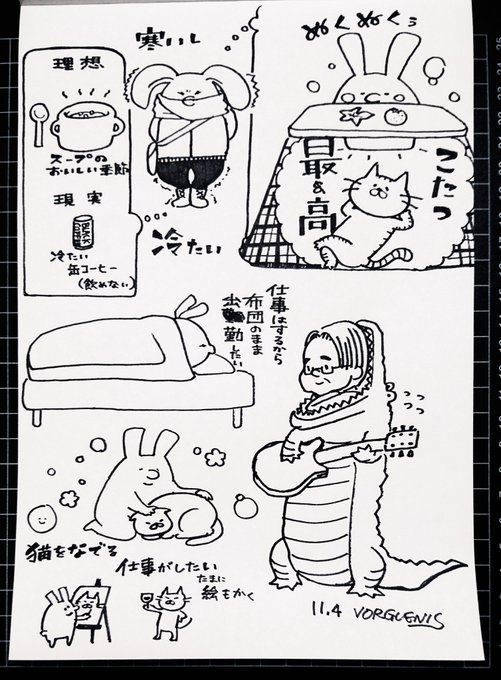 寒いし
理想
スープの
おいしい季節
現実
冷たい
缶コーヒー
(飲めない)
冷たい
ぬくぬく
こたつ
最&高
仕事はするから
布団のまま
出勤したい
猫をなでる
仕事がしたい
たまに
絵もかく
11.4 VORGUENIS